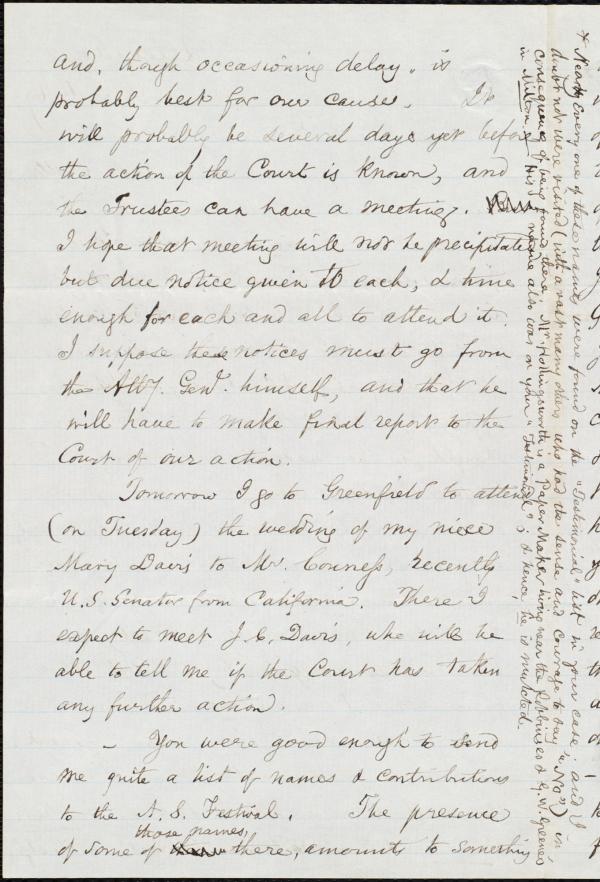 and, though occasioning delay, is
probably best for our cause. It
will probably be several days yet before
the action of the Court is known, and
the Trustees can have a meeting.
I hope that meeting will not be precipitated
but due notice given to each, & time
enough for each and all to attend it.
I suppose these notices must go from
the Atty. Genl. himself, and that he
will have to make final report to the
Court of our action.
Tomorrow I go to Greenfield to attend
(on Tuesday) the wedding of my niece
Mary Davis to Mr. Conness, recently
U.S. Senator from California. There I
expect to meet J. C. Davis, who will be
able to tell me if the Court has taken
any further action.
– You were good enough to send
me quite a list of names & contributions
to the A. S. Festival. The presence
those names,
of some of there, amounts to something
* Nearly every one of these names were found on the "Testimonial" list in your case; and I
doubt not were visited (with a vast many others who had the sense and courage to say "No") in
consequence of being found there. Mr. Hollingsworth is a paper maker living near the Robbinses & G. W. Greene's
in Milton. His name also was on your "Testimonial"; & hence, he is mulcted.